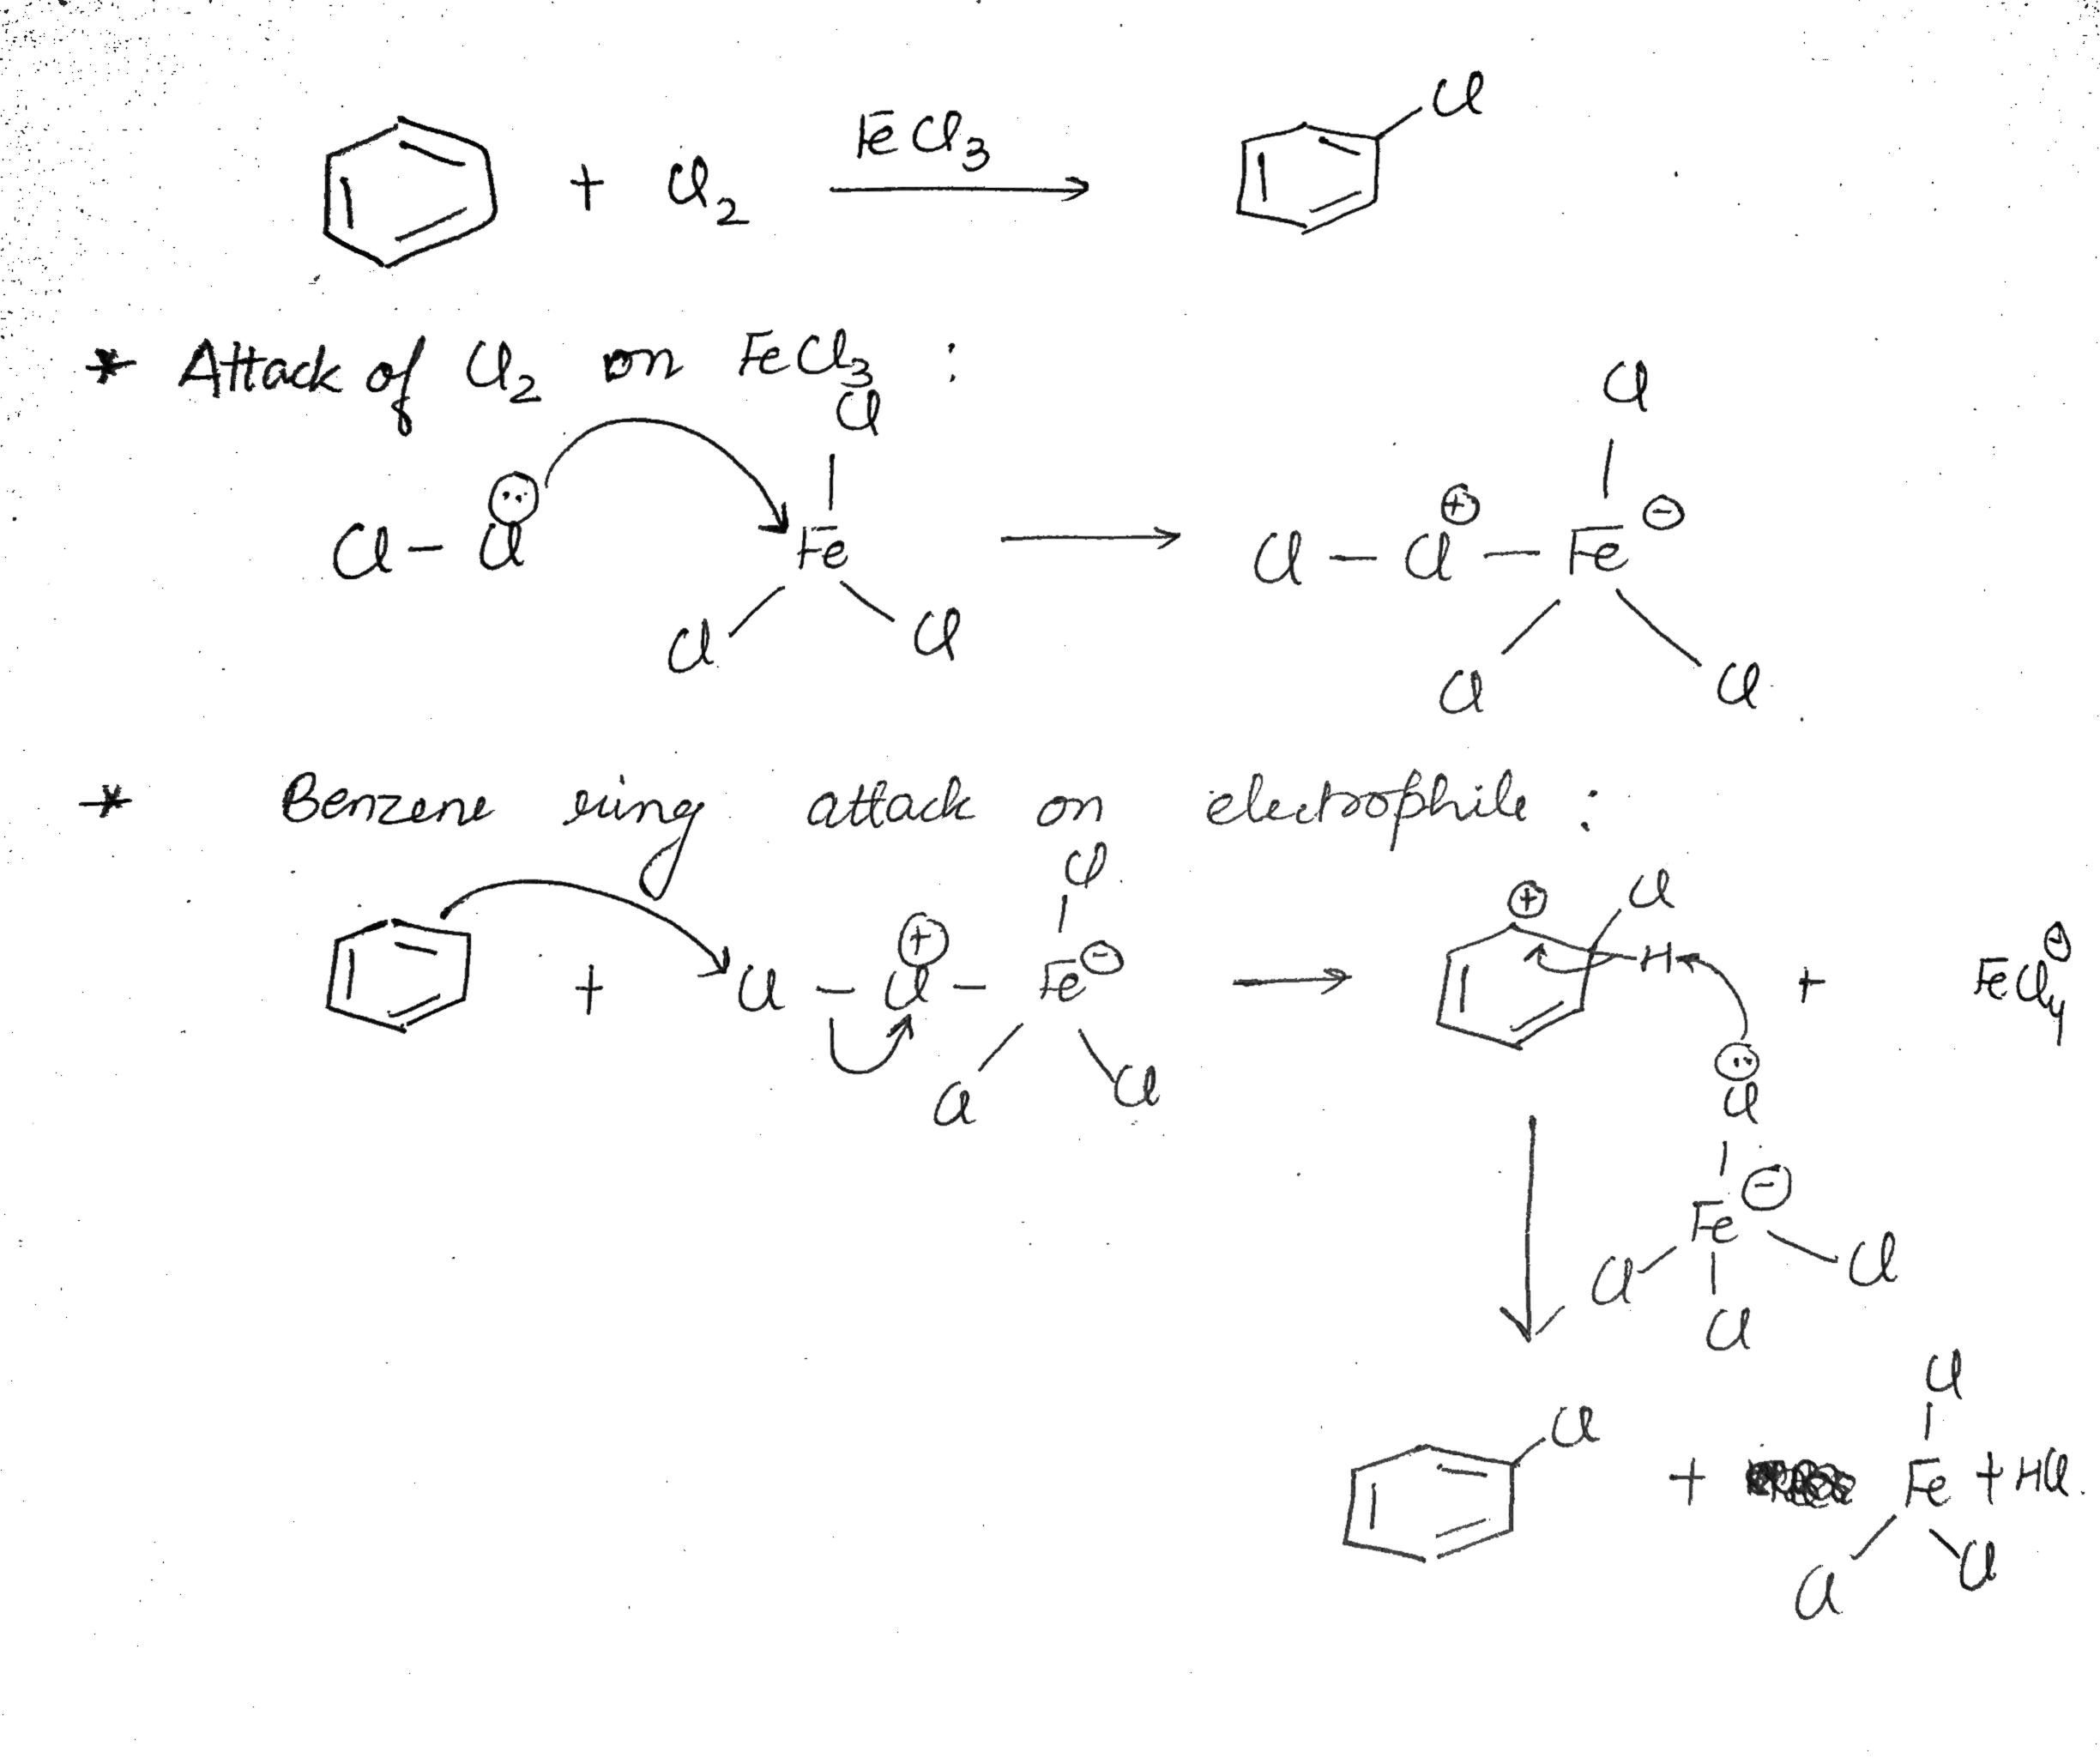 + Cl2 FeCl3 Cl
* Attack of Cl2 on FeCl3 :
Cl Cl
Cl - Cl Fe Cl - Cl ⊕ - Fe ⊖
Cl Cl Cl Cl
* Benzene ring attack on electrophile :
Cl ⊕ Cl
+ Cl - Cl ⊕ - Fe ⊖ H + FeCl4 ⊖
Cl Cl Cl
Fe ⊖
Cl Cl
Cl
Cl Cl
+ Fe + HCl.
Cl Cl